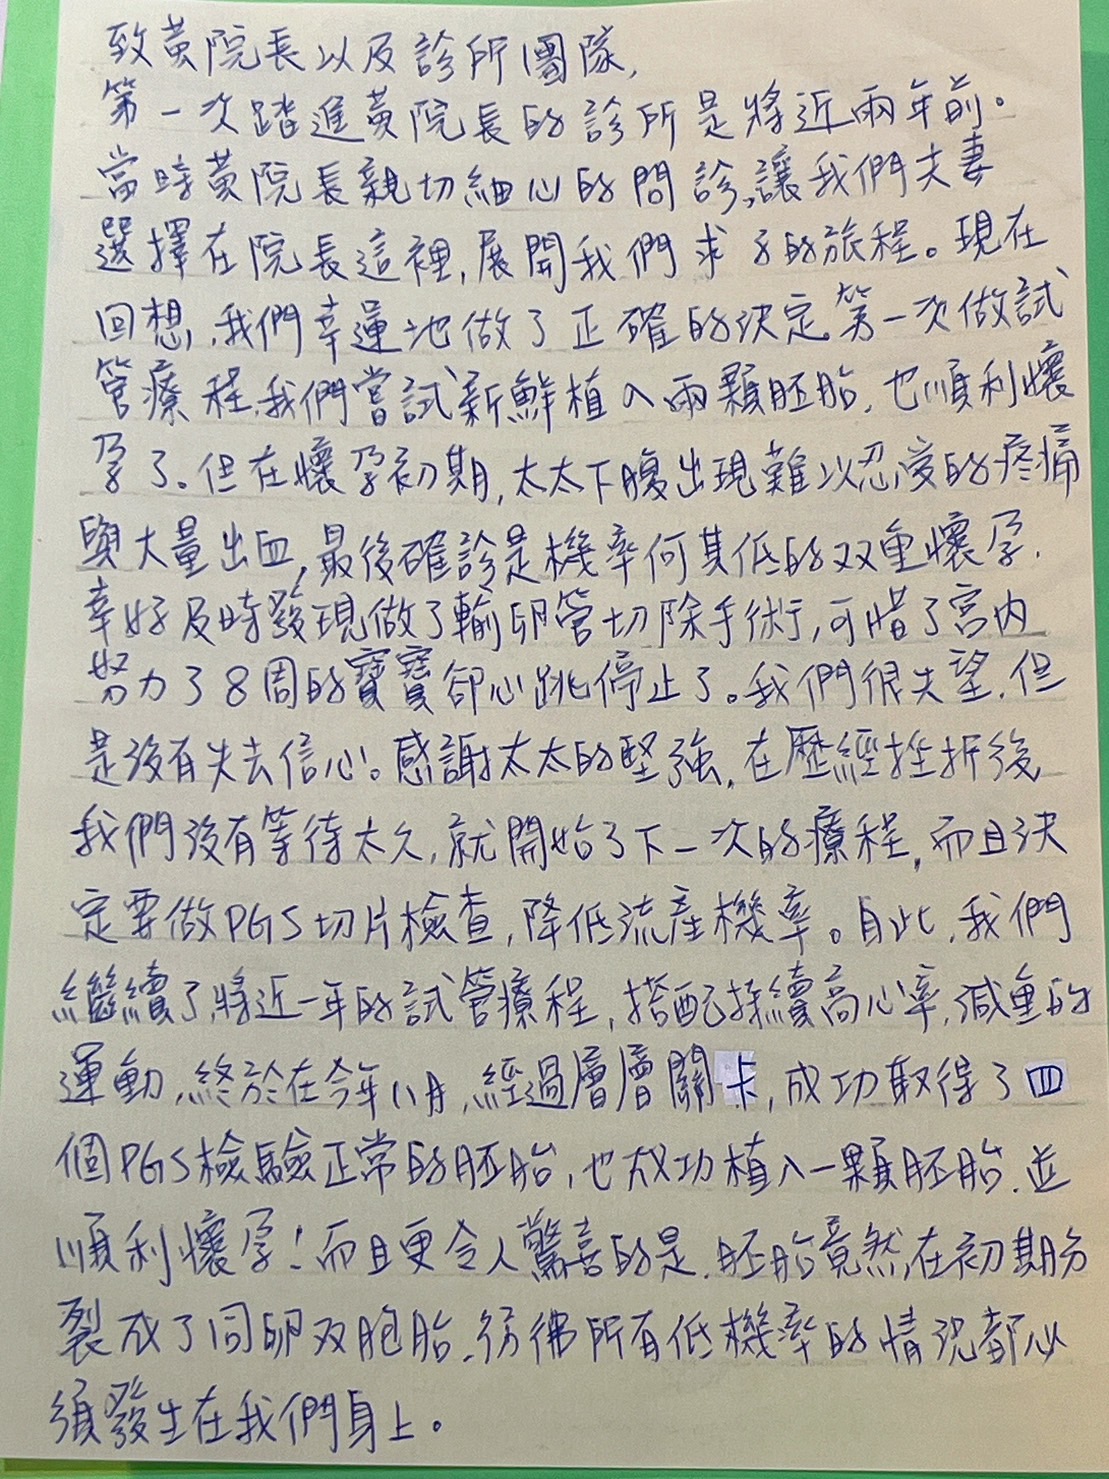 致黃院長以及診所團隊,
第一次踏進黃院長的診所是將近兩年前。
當時黃院長親切細心的問診,讓我們夫妻
選擇在院長這裡,展開我們求子的旅程。現在
回想,我們幸運地做了正確的決定。第一次做試
管療程,我們嘗試新鮮植入兩顆胚胎,也順利懷
孕了。但在懷孕初期,太太下腹出現難以忍受的疼痛
與大量出血,最後確診是機率何其低的双重懷孕.
幸好及時發現做了輸卵管切除手術,可惜了宮內
努力了8周的寶寶卻心跳停止了。我們很失望,但
是沒有失去信心。感謝太太的堅強,在歷經挫折後
我們沒有等待太久,就開始了下一次的療程,而且決
定要做PGS切片檢查,降低流產機率。自此,我們
繼續了將近一年的試管療程,搭配持續高心率,減重的
運動,終於在今年八月,經過層層關卡,成功取得了四
個PGS檢驗正常的胚胎,也成功植入一顆胚胎.並
順利懷孕!而且更令人驚喜的是.胚胎竟然在初期分
裂成了同卵双胞胎.彷彿所有低機率的情況都必
須發生在我們身上。